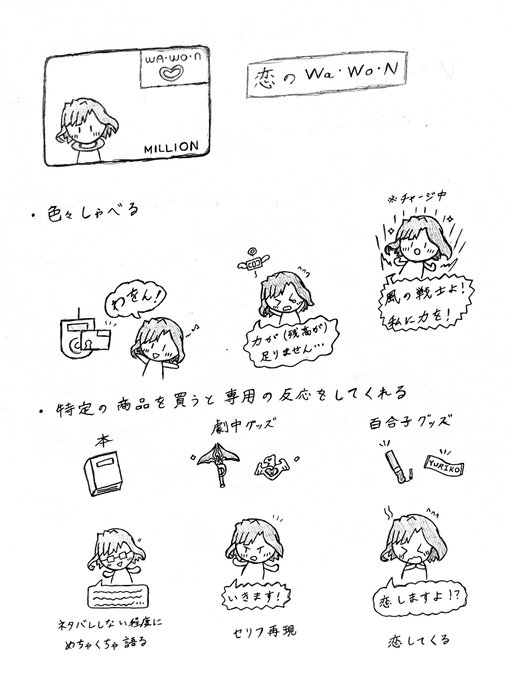 WA・WO・N
MILLION
恋のWa・Wo・N
・色々しゃべる
※チャージ中
わをん!
力が(残高が)
足りません…
風の戦士よ!
私に力を!
・特定の商品を買うと専用の反応をしてくれる
本
劇中グッズ
百合子グッズ
YURIKO
いきます!
恋しますよ!?
ネタバレしない程度に
めちゃくちゃ語る
セリフ再現
恋してくる